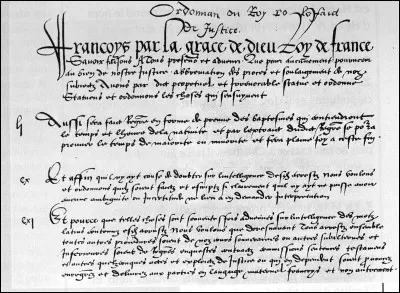 Ordonnan du Roy
de Justice.
Francoys par la grace de dieu Roy de france
Scavoir faisons A Tous presens et advenir Que pour aucunement pourveoir
au bien de nostre Justice abbreviation des proces et soulagement de noz
subiectz Avons par edict perpetuel et irrevocable statue et ordonne
Statuons et ordonnons les choses qui sensuyvent
Aussi sera faict Registre en forme de preuve des baptesmes qui contiendront
le temps et lheure de la nativite et par lextraict dudict Registre se pourra
prouver le temps de maiorite ou minorite et fera plaine foy a ceste fin
cx Et affin quil ny ayt cause de doubter sur lintelligence desd arrestz Nous voulons
et ordonnons quilz soient faictz et escriptz si clerement quil ny ayt ne puisse avoir
aucune ambiguite ou incertitude ne lieu a en demander Interpretation
cxi Et pource que telles choses sont souvent foys advenues sur lintelligence des motz
latins contenuz esd arrestz Nous voulons que doresnavant Tous arrestz ensemble
toutes autres procedures soient de noz cours souveraines ou autres subalternes et
Inferieures soient de Registres enquestes contractz commissions sentences testamens
et autres quelzconques actes et exploictz de Justice ou qui en dependent soient prononcez
enregistrez et delivrez aux parties en langage maternel francoys et non autrement.